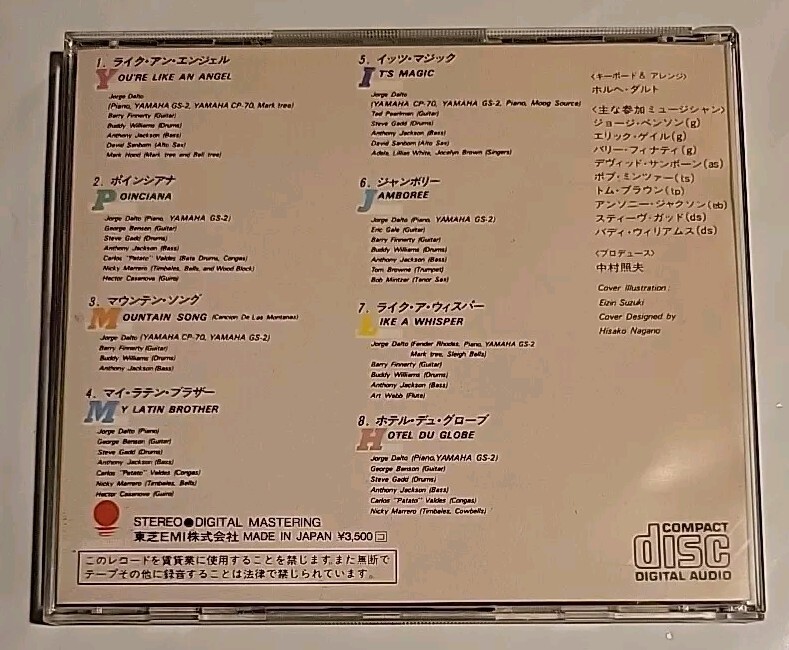 1. ライク・アン・エンジェル
YOU'RE LIKE AN ANGEL
Jorge Dalto
(Piano, YAMAHA GS-2, YAMAHA CP-70, Mark tree)
Barry Finnerty (Guitar)
Buddy Williams (Drums)
Anthony Jackson (Bass)
David Sanborn (Alto Sax)
Mark Hood (Mark tree and Bell tree)
2. ポインシアナ
POINCIANA
Jorge Dalto (Piano, YAMAHA GS-2)
George Benson (Guitar)
Steve Gadd (Drums)
Anthony Jackson (Bass)
Carlos "Patato" Valdes (Bata Drums, Congas)
Nicky Marrero (Timbales, Bells, and Wood Block)
Hector Casanova (Guiro)
3. マウンテン・ソング
MOUNTAIN SONG (Cancion De Las Montanas)
Jorge Dalto (YAMAHA CP-70, YAMAHA GS-2)
Barry Finnerty (Guitar)
Buddy Williams (Drums)
Anthony Jackson (Bass)
4. マイ・ラテン・ブラザー
MY LATIN BROTHER
Jorge Dalto (Piano)
George Benson (Guitar)
Steve Gadd (Drums)
Anthony Jackson (Bass)
Carlos "Patato" Valdes (Congas)
Nicky Marrero (Timbales, Bells)
Hector Casanova (Guiro)
5. イッツ・マジック
IT'S MAGIC
Jorge Dalto
(YAMAHA CP-70, YAMAHA GS-2, Piano, Moog Source)
Ted Pearlman (Guitar)
Steve Gadd (Drums)
Anthony Jackson (Bass)
David Sanborn (Alto Sax)
Adela, Lillian White, Jocelyn Brown (Singers)
6. ジャンボリー
JAMBOREE
Jorge Dalto (Piano, YAMAHA GS-2)
Eric Gale (Guitar)
Barry Finnerty (Guitar)
Buddy Williams (Drums)
Anthony Jackson (Bass)
Tom Browne (Trumpet)
Bob Mintzer (Tenor Sax)
7. ライク・ア・ウィスパー
LIKE A WHISPER
Jorge Dalto (Fender Rhodes, Piano, YAMAHA GS-2
Mark tree, Sleigh Bells)
Barry Finnerty (Guitar)
Buddy Williams (Drums)
Anthony Jackson (Bass)
Art Webb (Flute)
8. ホテル・デュ・グローブ
HOTEL DU GLOBE
Jorge Dalto (Piano,YAMAHA GS-2)
George Benson (Guitar)
Steve Gadd (Drums)
Anthony Jackson (Bass)
Carlos "Patato" Valdes (Congas)
Nicky Marrero (Timbales, Cowbells)
〈キーボード& アレンジ〉
ホルヘ・ダルト
〈主な参加ミュージシャン〉
ジョージ・ベンソン(g)
エリック・ゲイル(g)
バリー・フィナティ(g)
デヴィッド・サンボーン(as)
ボブ・ミンツァー(ts)
トム・ブラウン(tp)
アンソニー・ジャクソン(eb)
スティーヴ・ガッド(ds)
バディ・ウィリアムス(ds)
〈プロデュース〉
中村照夫
Cover Illustration :
Eizin Suzuki
Cover Designed by
Hisako Nagano
STEREO●DIGITAL MASTERING
東芝EMI株式会社 MADE IN JAPAN ¥3,500 コ
このレコードを賃貸業に使用することを禁じます。また無断で
テープその他に録音することは法律で禁じられています。
COMPACT
disc
DIGITAL AUDIO